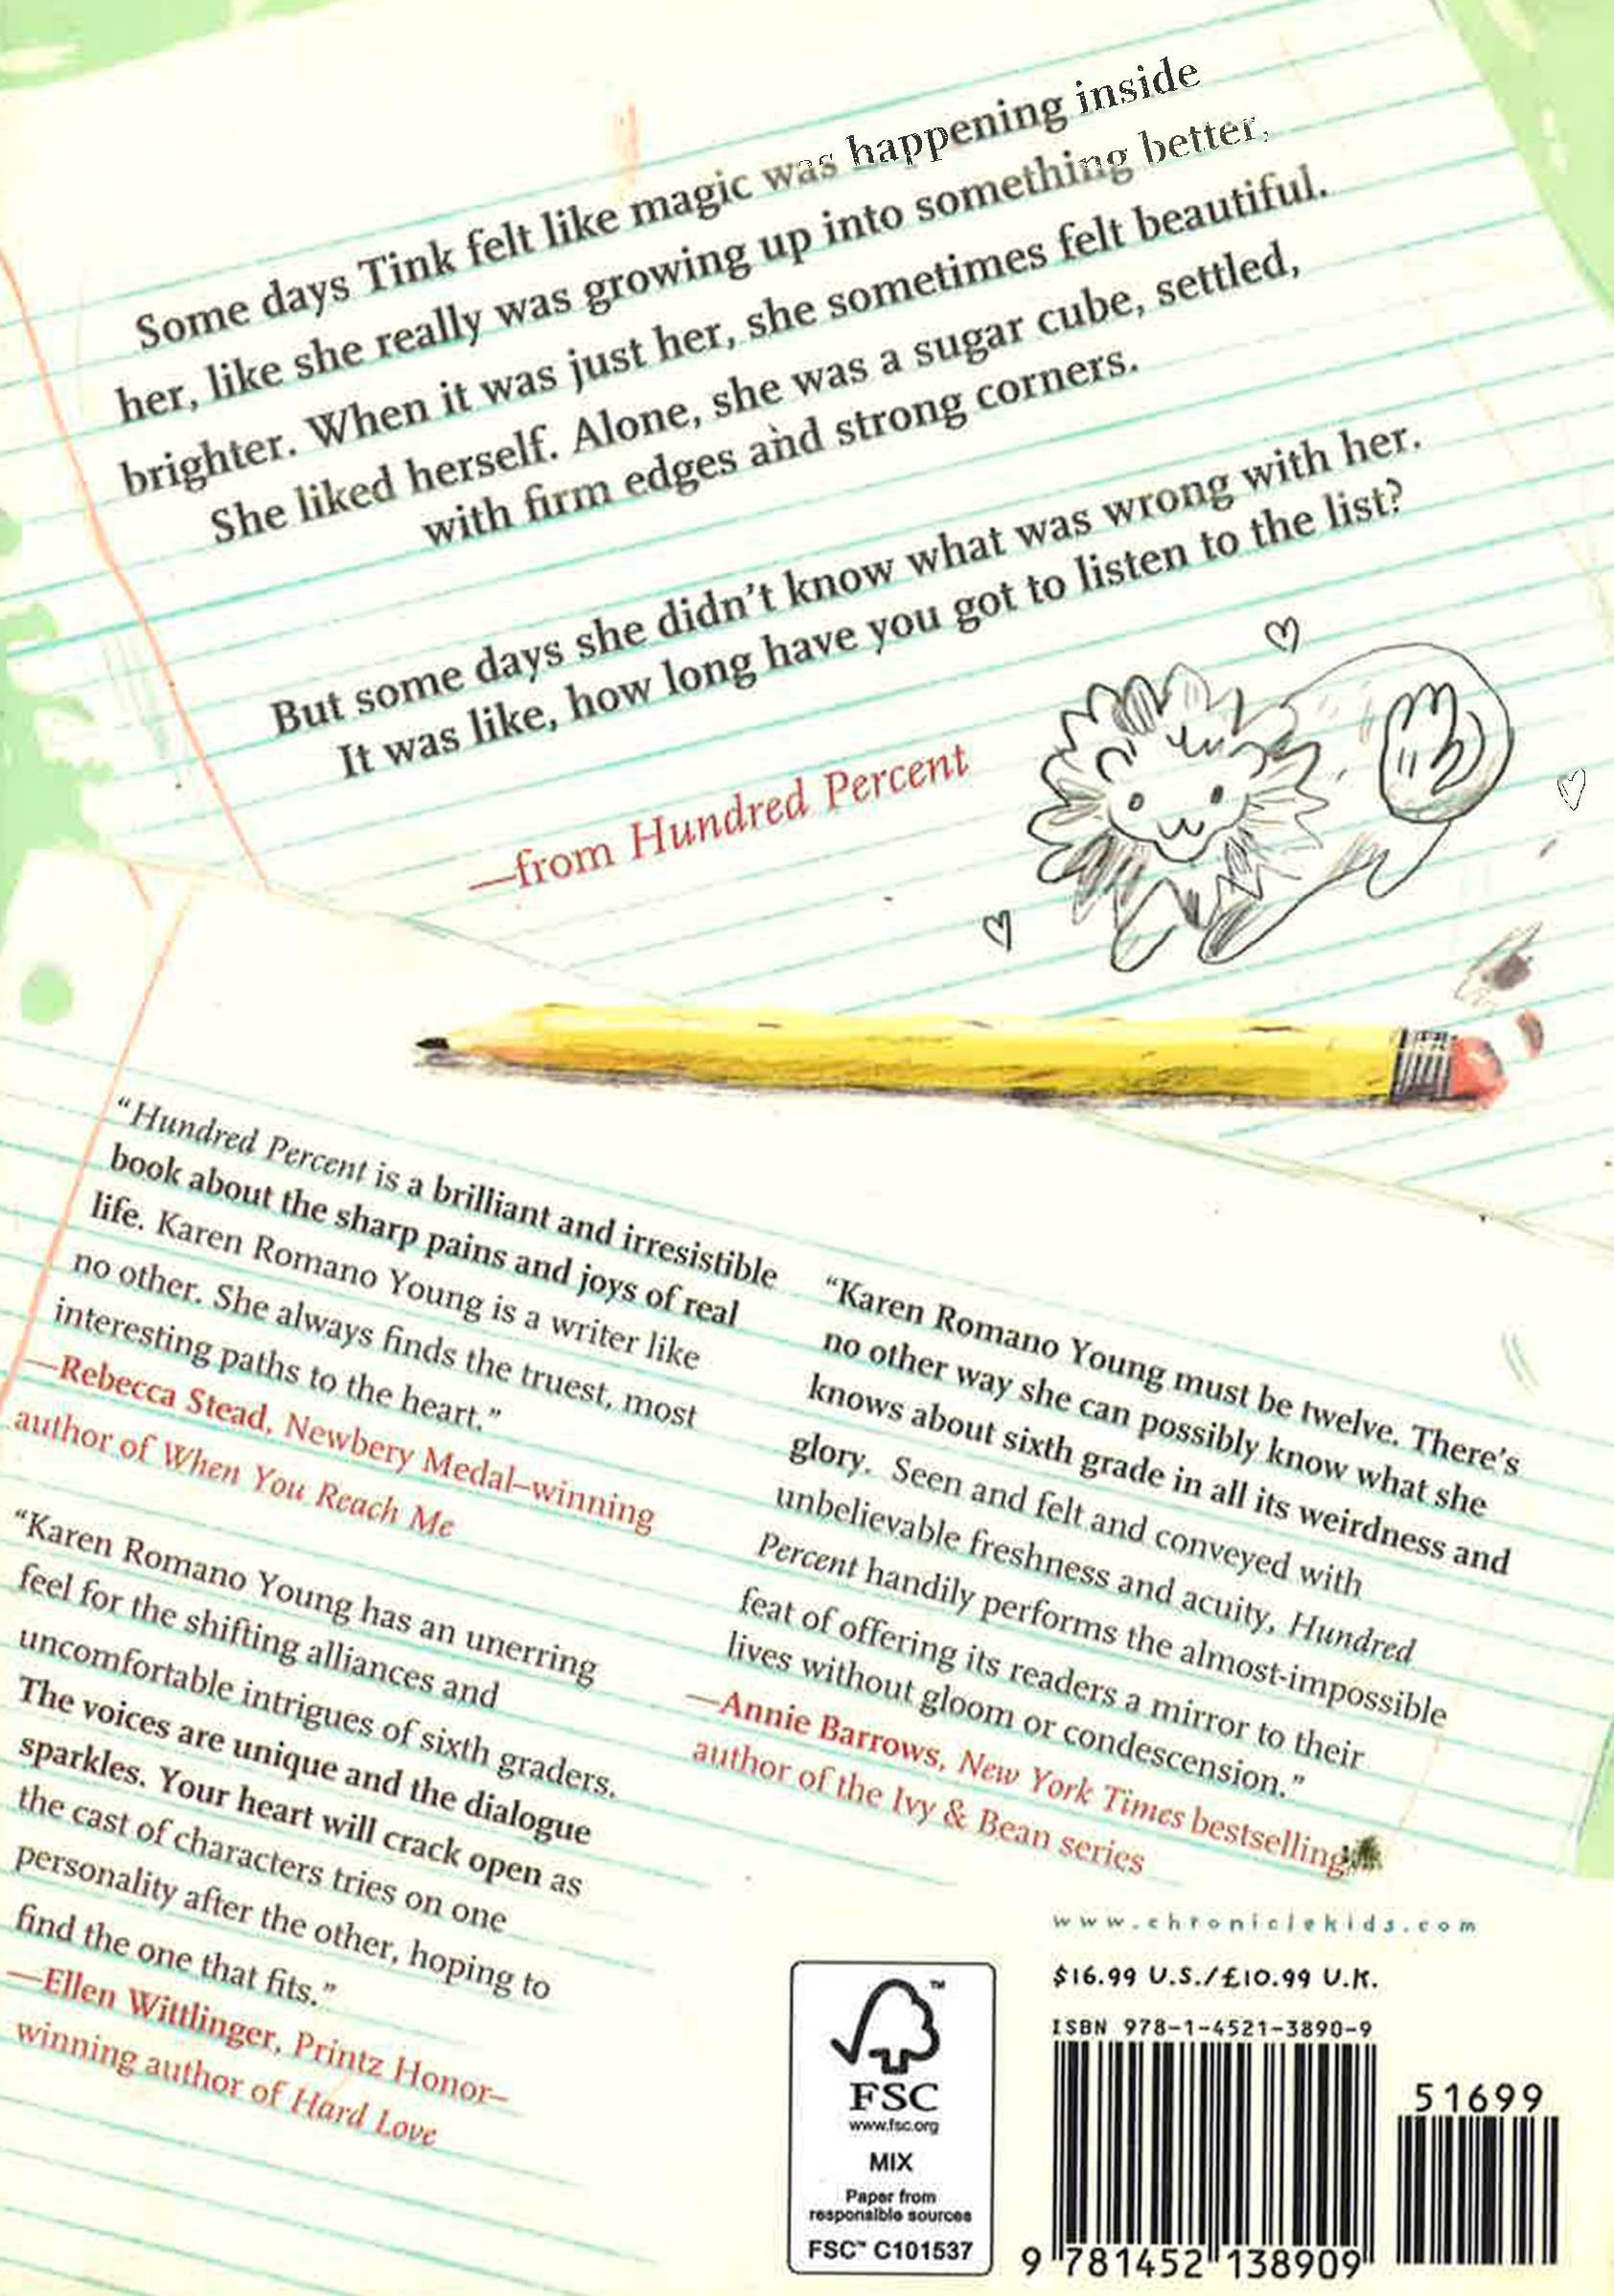 Some days Tink felt like magic was happening inside
her, like she really was growing up into something better,
brighter. When it was just her, she sometimes felt beautiful.
She liked herself. Alone, she was a sugar cube, settled,
with firm edges and strong corners.
But some days she didn't know what was wrong with her.
It was like, how long have you got to listen to the list?
—from Hundred Percent
“Hundred Percent is a brilliant and irresistible
book about the sharp pains and joys of real
life. Karen Romano Young is a writer like
no other. She always finds the truest, most
interesting paths to the heart.”
—Rebecca Stead, Newbery Medal–winning
author of When You Reach Me
“Karen Romano Young has an unerring
feel for the shifting alliances and
uncomfortable intrigues of sixth graders.
The voices are unique and the dialogue
sparkles. Your heart will crack open as
the cast of characters tries on one
personality after the other, hoping to
find the one that fits.”
—Ellen Wittlinger, Printz Honor–
winning author of Hard Love
“Karen Romano Young must be twelve. There's
no other way she can possibly know what she
knows about sixth grade in all its weirdness and
glory. Seen and felt and conveyed with
unbelievable freshness and acuity, Hundred
Percent handily performs the almost-impossible
feat of offering its readers a mirror to their
lives without gloom or condescension.”
—Annie Barrows, New York Times bestselling
author of the Ivy & Bean series
www.chroniclekids.com
$16.99 U.S./£10.99 U.K.
ISBN 978-1-4521-3890-9
51699
9 781452 138909
FSC
www.fsc.org
MIX
Paper from
responsible sources
FSC™ C101537